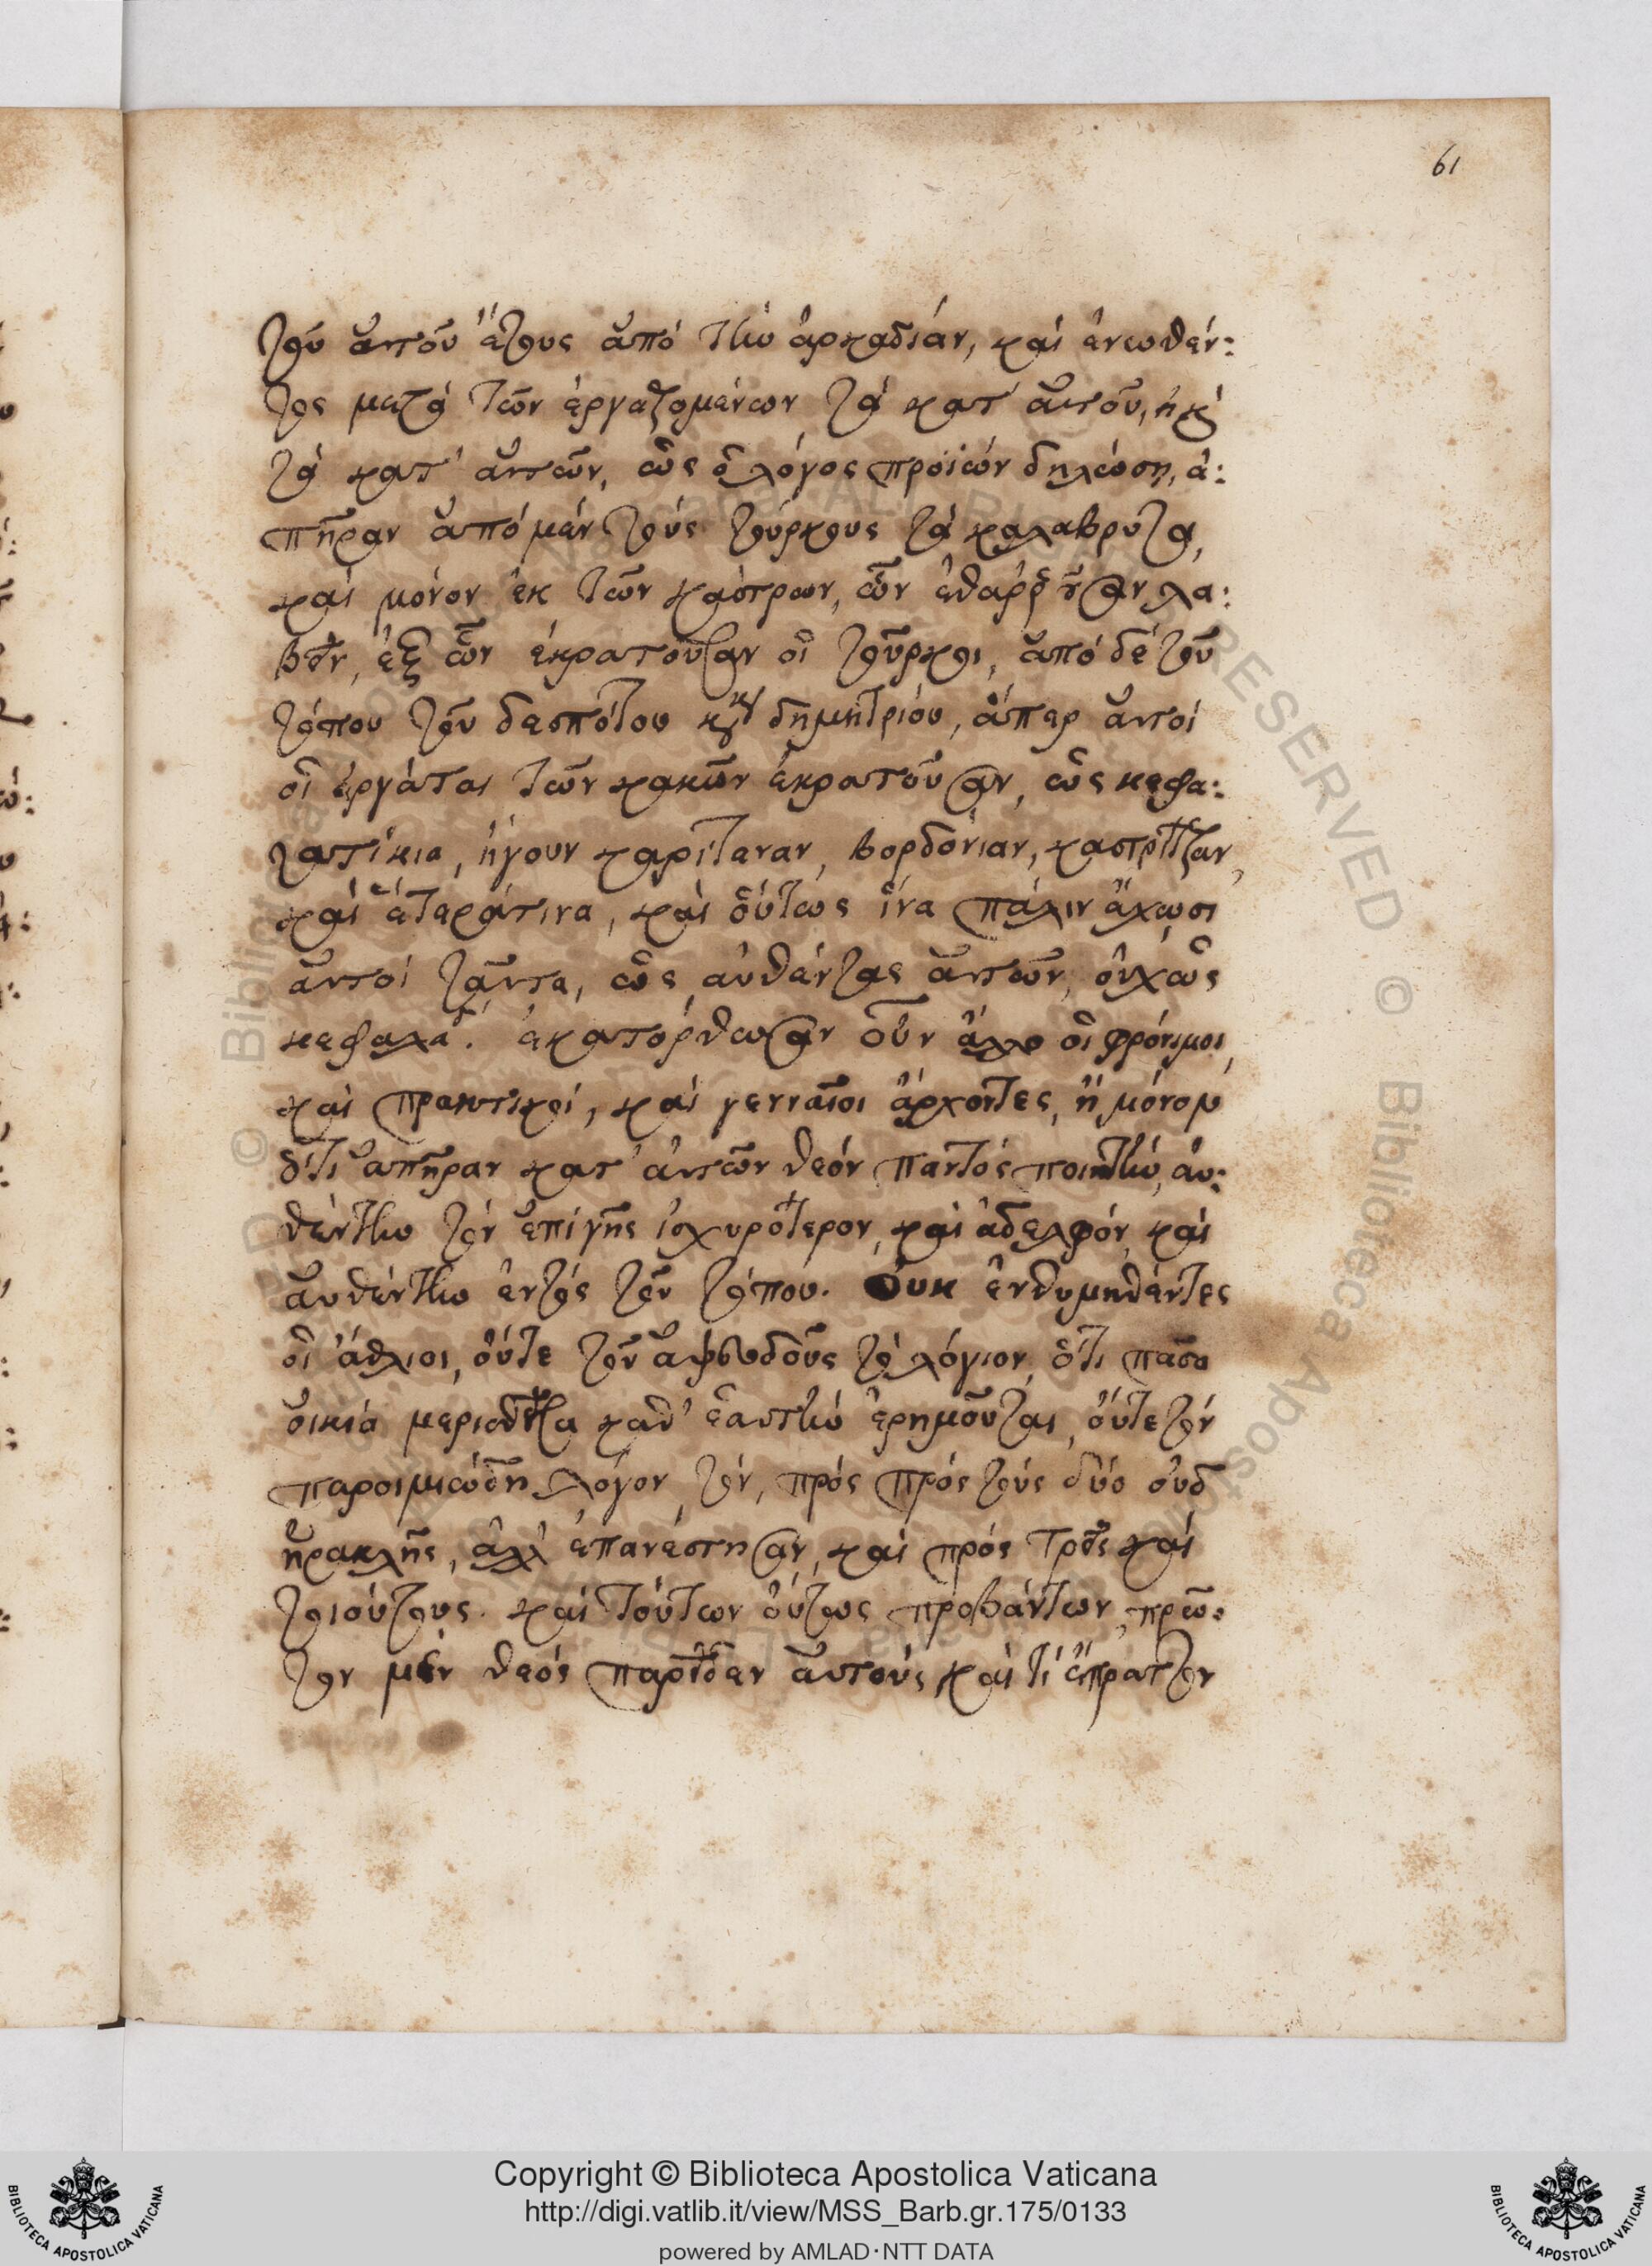 61
τοῦ αὐτοῦ ἔτους ἀπὸ τὴν ἀρκαδίαν, καὶ ἑνωθέν:
τος μετὰ τῶν ἐργαζομένων τὰ κατ' αὐτοῦ, ἢ καὶ
τὰ κατ' αὐτῶν, ὡς ὁ λόγος προϊὼν δηλώσῃ, ἀ:
πῆραν ἀπὸ μὲν τοὺς τούρκους τὰ καλάβρυτα,
καὶ μόνον ἐκ τῶν κάστρων, ὧν ἐθαρροῦσαν λα:
βεῖν, ἐξ ὧν ἐκρατοῦσαν οἱ τοῦρκοι, ἀπὸ δὲ τοῦ
τόπου τοῦ δεσπότου κὺρ δημητρίου, ἅπερ αὐτοὶ
οἱ ἐργάται τῶν κακῶν ἐκρατοῦσαν, ὡς κεφα:
λατίκια, ἤγουν καρίταναν, βορδόνιαν, καστρίτζαν,
καὶ ἕτερά τινα, καὶ οὕτως ἵνα πάλιν ἔχωσι
αὐτοὶ ταῦτα, ὡς αὐθέντας αὐτῶν, οὐχ ὡς
κεφαλά. ἐκατόρθωσαν οὖν ἄλλο οἱ φρόνιμοι,
καὶ πρακτικοί, καὶ γενναῖοι ἄρχοντες, ἢ μόνον
ὅτι ἀπῆραν κατ' αὐτῶν θεὸν παντὸς ποιητὴν, αὐ:
θέντην τὸν ἐπὶ γῆς ἰσχυρότερον, καὶ ἀδελφόν, καὶ
αὐθέντην ἐντὸς τοῦ τόπου. Οὐκ ἐνθυμηθέντες
οἱ ἄθλιοι, οὔτε τοῦ ἀψευδοῦς τὸ λόγιον, ὅτι πᾶσα
οἰκία μερισθεῖσα καθ' ἑαυτὴν ἐρημοῦται, οὔτε τὸν
παροιμιώδη λόγον τὸν, πρὸς πρὸς τοὺς δύο οὐδ
ἡρακλῆς, ἀλλ' ἐπανέστησαν, καὶ πρὸς τρεῖς καὶ
τοιούτους. καὶ τούτων οὕτως προβάντων, πρῶ:
τον μὲν θεὸς παρεῖδεν αὐτούς, καὶ τί ἔπραττον
© Biblioteca Apostolica Vaticana. ALL RIGHTS RESERVED
Copyright © Biblioteca Apostolica Vaticana
http://digi.vatlib.it/view/MSS_Barb.gr.175/0133
powered by AMLAD·NTT DATA
BIBLIOTECA APOSTOLICA VATICANA
BIBLIOTECA APOSTOLICA VATICANA